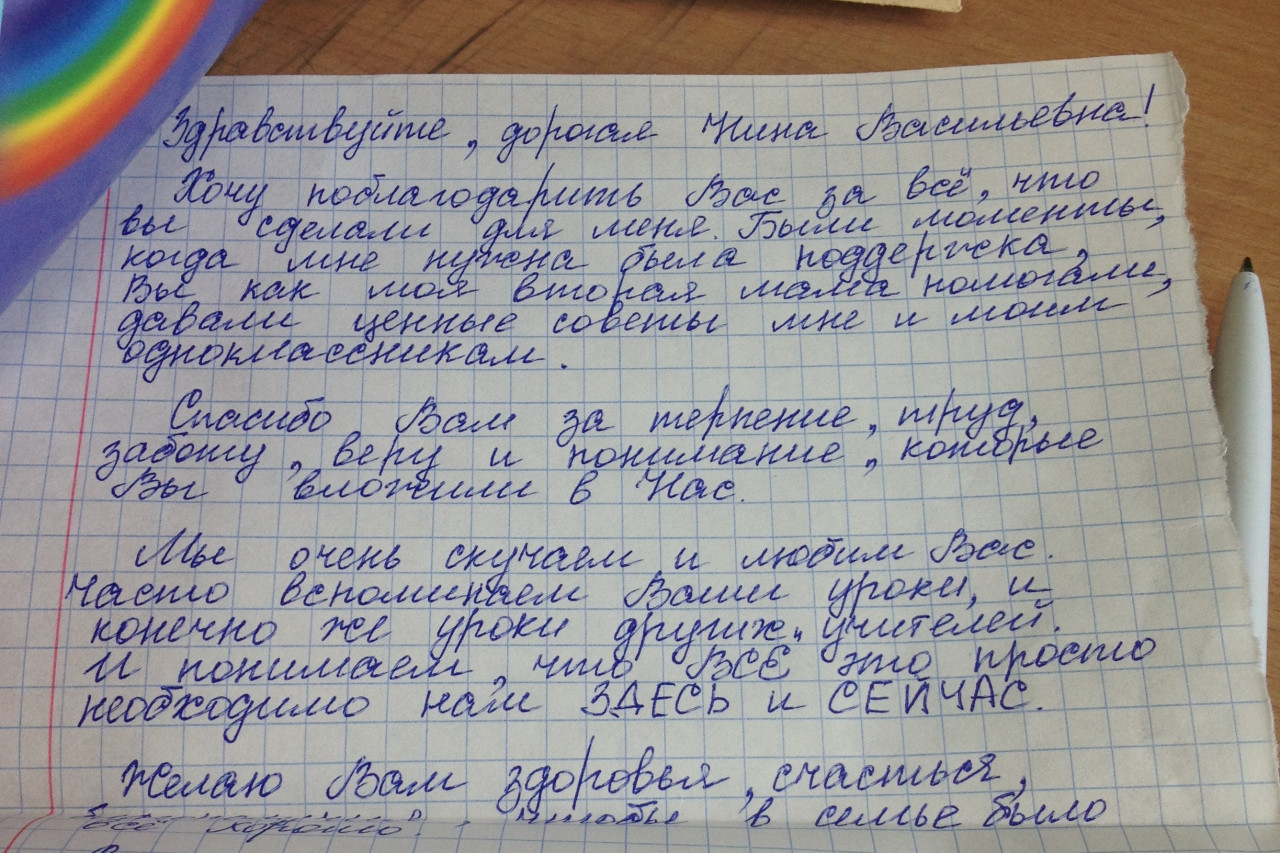 Здравствуйте, дорогая Нина Васильевна!
Хочу поблагодарить Вас за всё, что
вы сделали для меня. Были моменты,
когда мне нужна была поддержка,
Вы как моя вторая мама помогали,
давали ценные советы мне и моим
одноклассникам.
Спасибо Вам за терпение, труд,
заботу, веру и понимание, которые
Вы вложили в Нас.
Мы очень скучаем и любим Вас.
Часто вспоминаем Ваши уроки, и
конечно же уроки других учителей.
И понимаем, что ВСЕ это просто
необходимо нам ЗДЕСЬ и СЕЙЧАС.
Желаю Вам здоровья, счастья,
чтобы в семье было
всё хорошо.